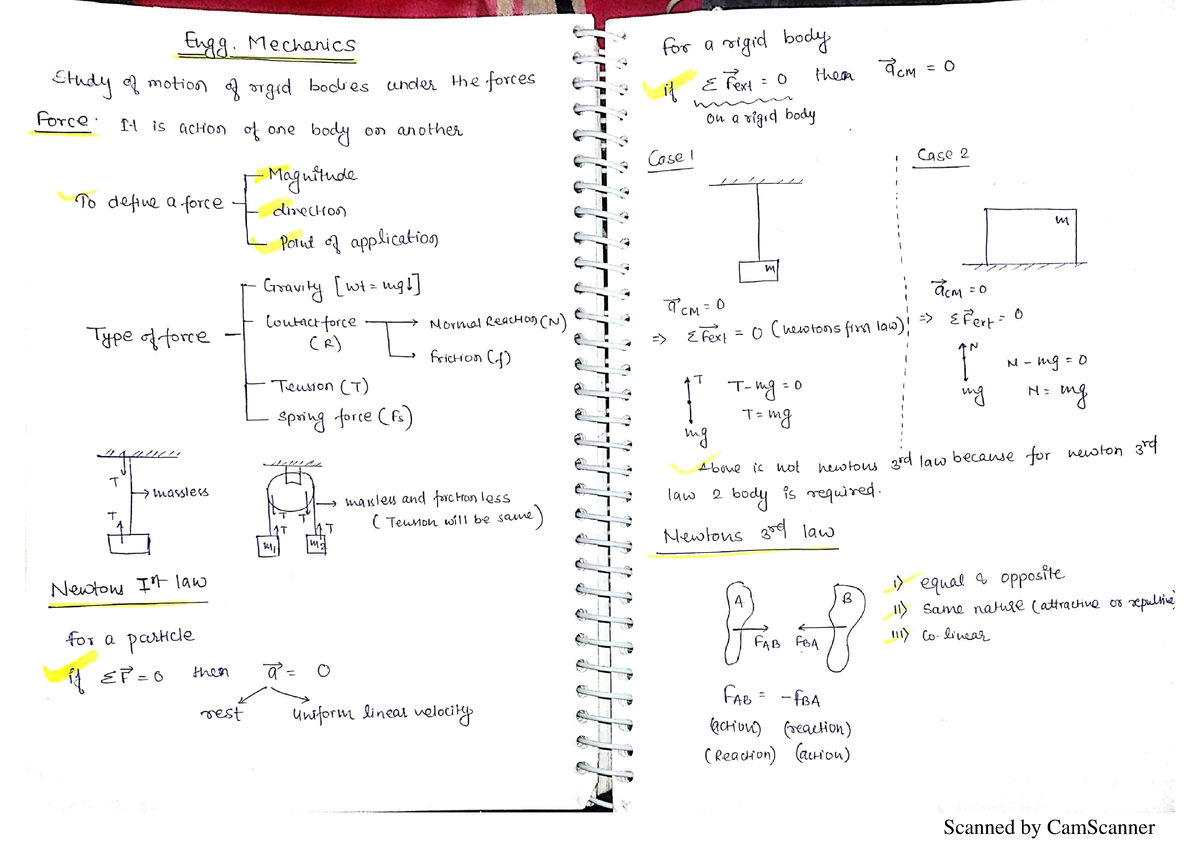 Engg. Mechanics
Study of motion of rigid bodies under the forces
Force. It is action of one body on another
To define a force
Magnitude
direction
Point of application
Type of force
Gravity [wt = mg↓]
Contact force (R)
Normal Reaction (N)
friction (f)
Tension (T)
Spring force (Fs)
T
T
massless
T T
T T
m1 m2
massless and frictionless
(Tension will be same)
Newtons Ist law
for a particle
if ΣF⃗ = 0 then a⃗ = 0
rest uniform linear velocity
for a rigid body
if ΣF⃗ext = 0 then a⃗CM = 0
on a rigid body
Case 1
m
a⃗CM = 0
⇒ ΣF⃗ext = 0 (newtons first law)
T
mg
T - mg = 0
T = mg
Case 2
m
a⃗CM = 0
⇒ ΣF⃗ext = 0
N
mg
N - mg = 0
N = mg
Above is not newtons 3rd law because for newton 3rd
law 2 body is required.
Newtons 3rd law
A B
FAB FBA
i) equal & opposite
ii) Same nature (attractive or repulsive)
iii) Co-linear
FAB = -fBA
(action) (reaction)
(Reaction) (action)
Scanned by CamScanner